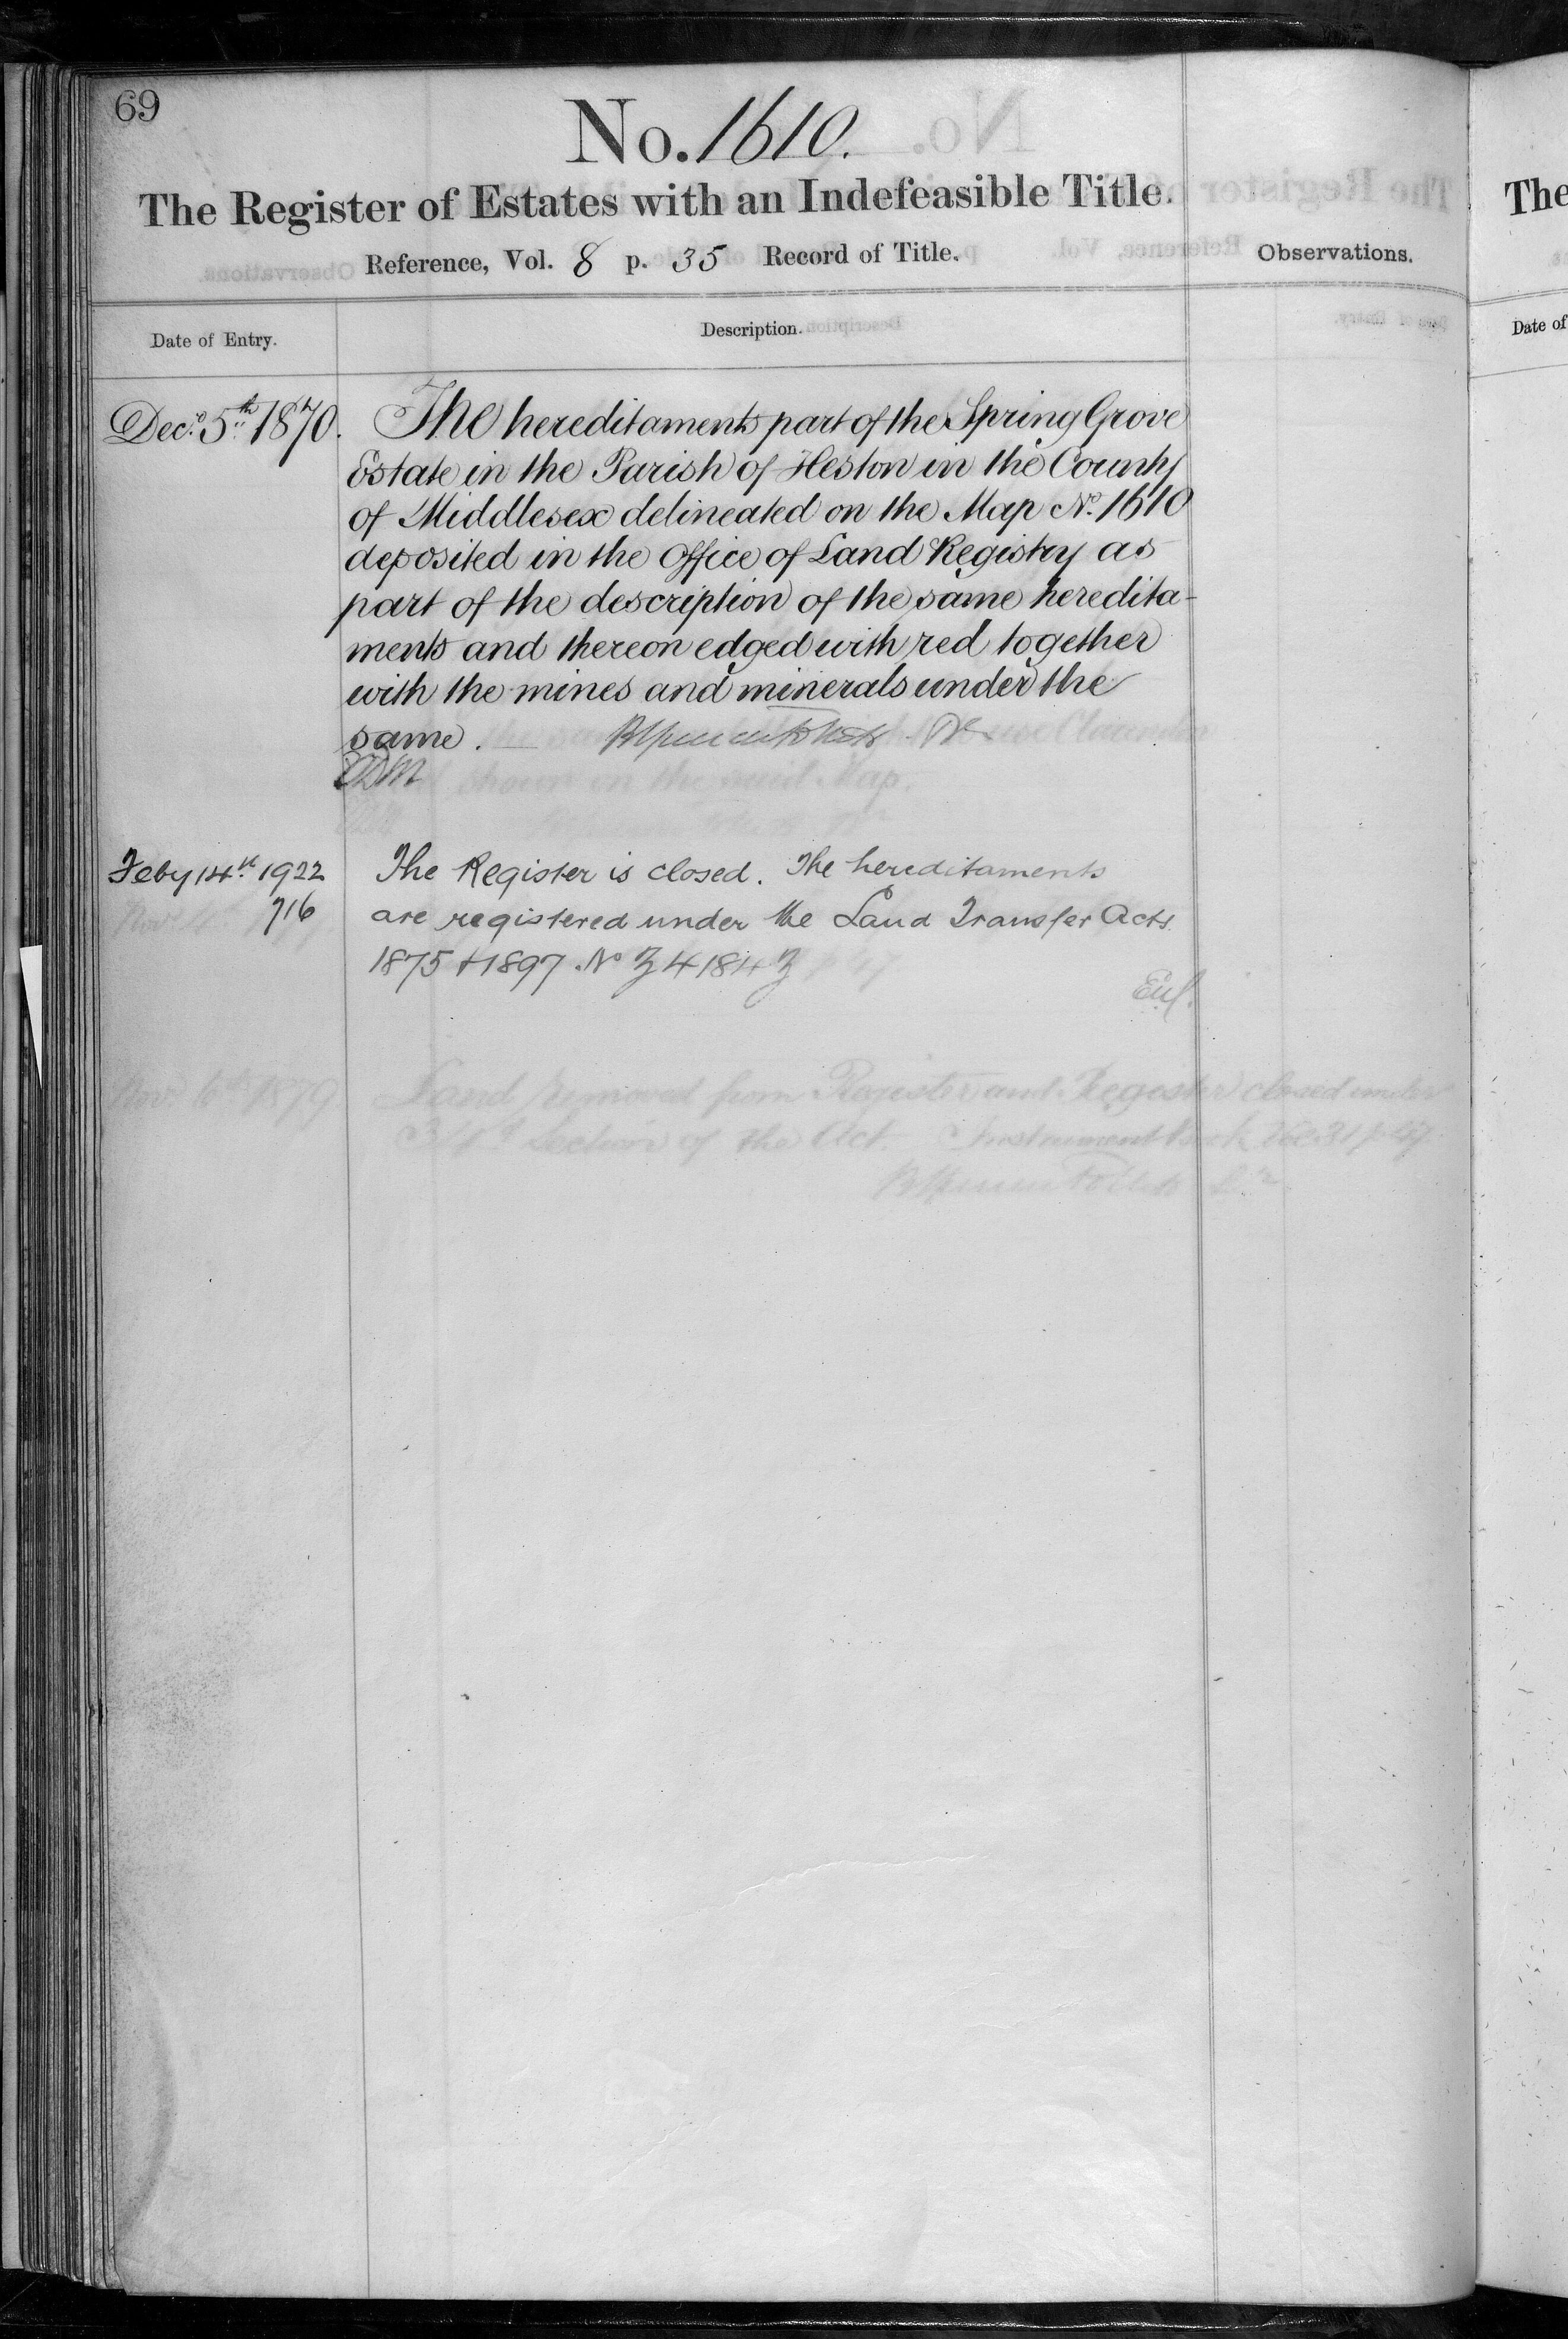 69
No. 1610.
The Register of Estates with an Indefeasible Title.
Reference, Vol. 8 p. 35 Record of Title.
Observations.
Date of Entry.
Description.
Decr. 5th 1870.
The hereditaments part of the Spring Grove
Estate in the Parish of Heston in the County
of Middlesex delineated on the Map No. 1610
deposited in the Office of Land Registry as
part of the description of the same heredita-
ments and thereon edged with red together
with the mines and minerals under the
same.
Feby 14th 1922
716
The Register is closed. The hereditaments
are registered under the Land Transfer Acts
1875 + 1897. No
Nov. 6th 1879
Land removed from Register and Register closed under
Section of the Act. Instrument Book Vol. 31 p.
The
Date of